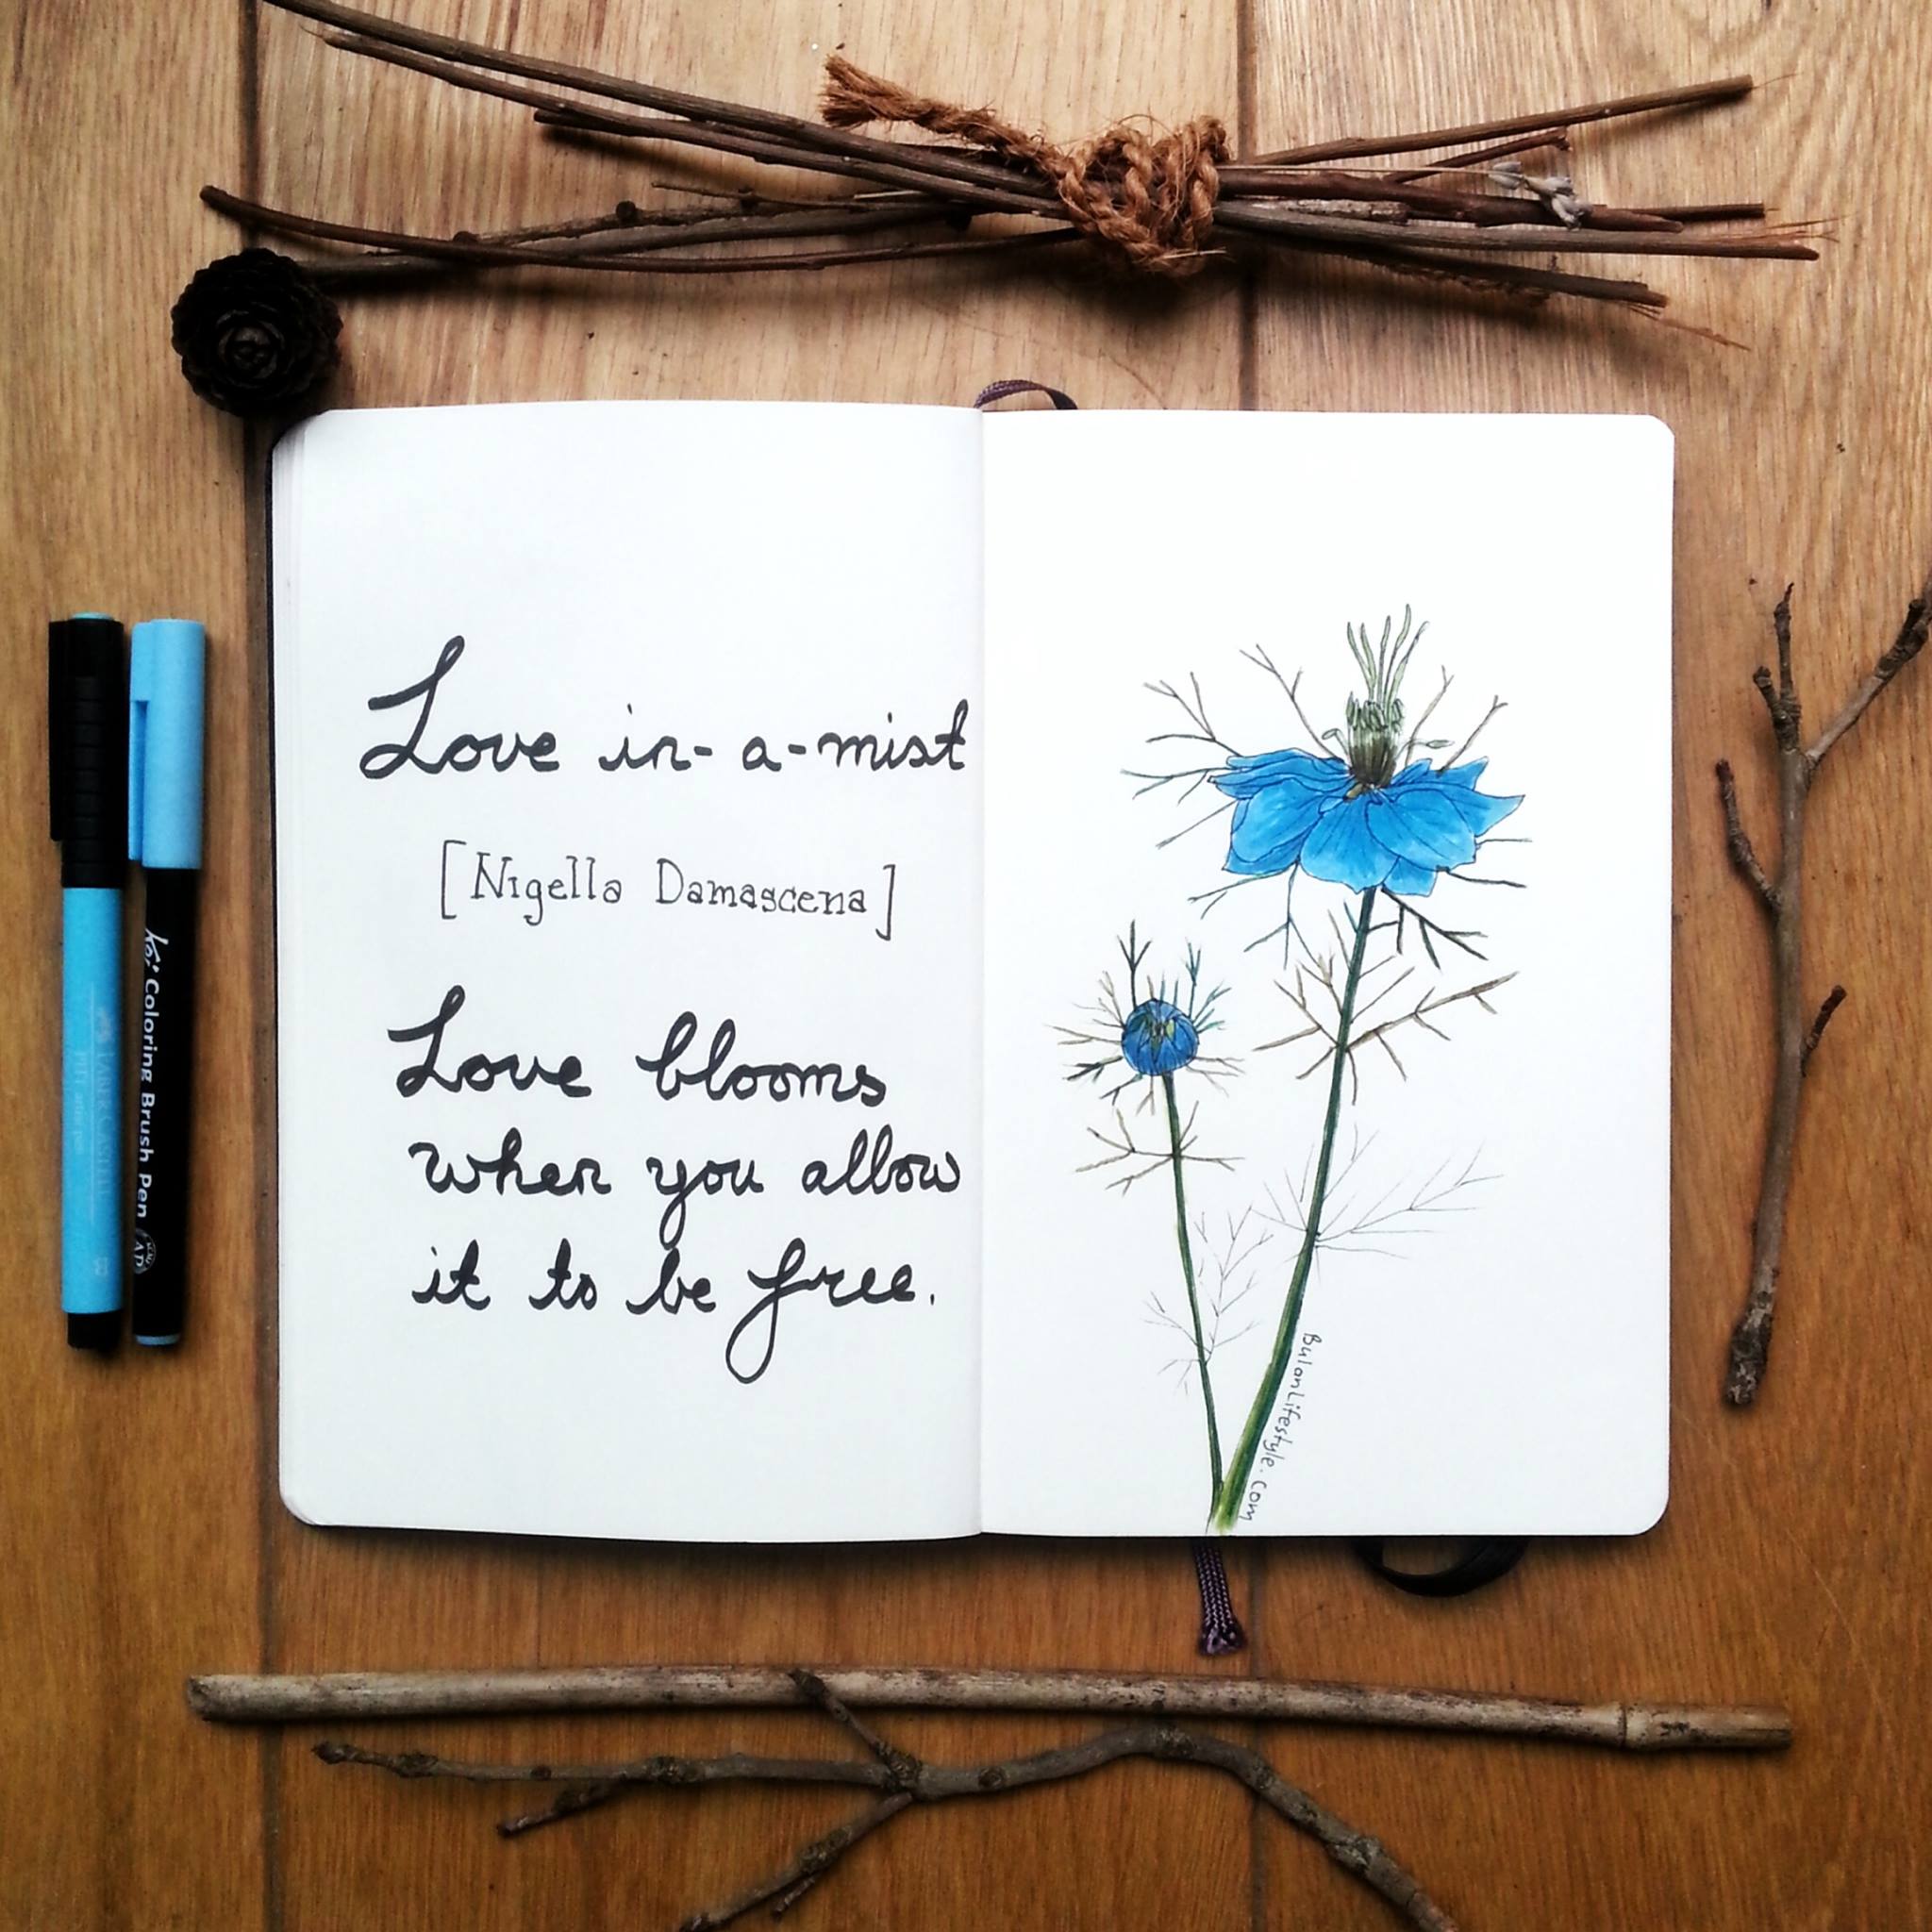 Love in-a-mist
[Nigella Damascena]
Love blooms
when you allow
it to be free.
BulanLifestyle.com
Koi Coloring Brush Pen
FABER-CASTELL
PITT artist pen